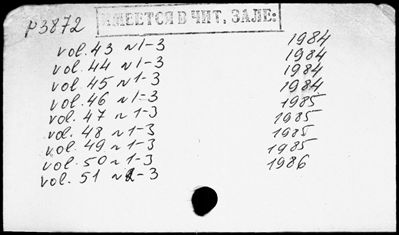 р3872
ИМЕЕТСЯ В ЧИТ. ЗАЛЕ:
vol. 43 n1-3 1984
vol. 44 n1-3 1984
vol. 45 n1-3 1984
vol. 46 n1-3 1984
vol. 47 n1-3 1985
vol. 48 n1-3 1985
vol. 49 n1-3 1985
vol. 50 n1-3 1985
vol. 51 n2-3 1986